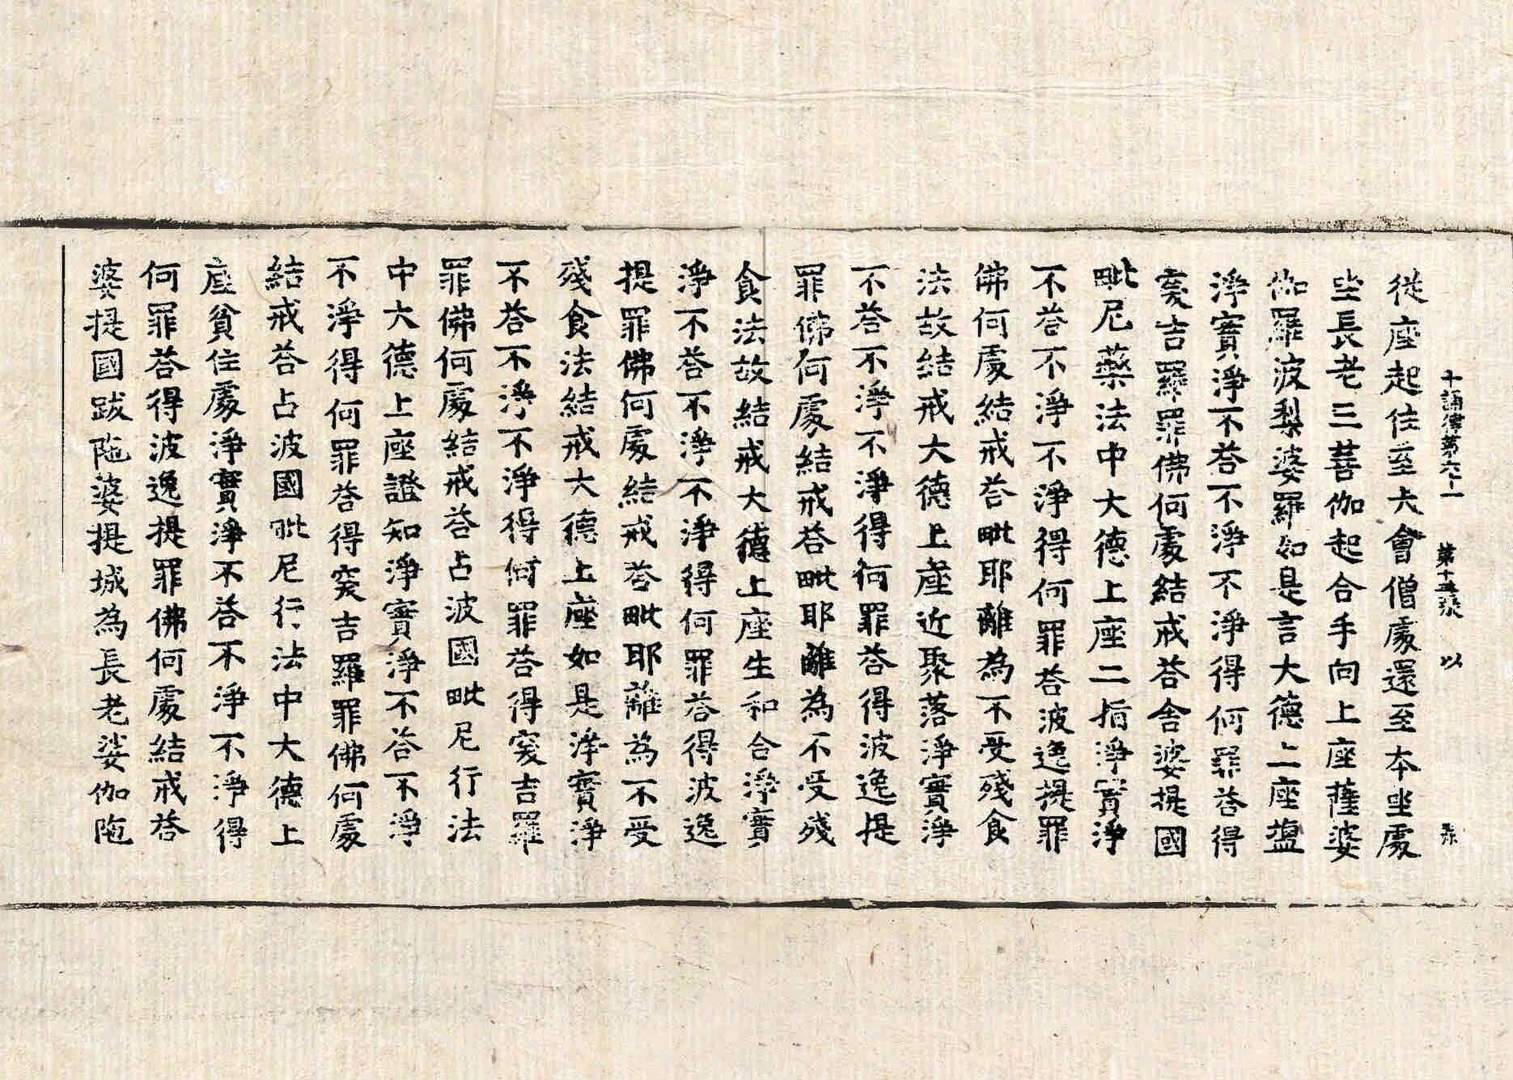 十誦律第六十一　第十五張　以
從座起往至大會僧處還至本坐處
坐長老三菩伽起合手向上座薩婆
伽羅波梨婆羅如是言大德上座鹽
淨實淨不答不淨不淨得何罪答得
突吉羅罪佛何處結戒答舍婆提國
毗尼藥法中大德上座二指淨實淨
不答不淨不淨得何罪答波逸提罪
佛何處結戒答毗耶離為不受殘食
法故結戒大德上座近聚落淨實淨
不答不淨不淨得何罪答得波逸提
罪佛何處結戒答毗耶離為不受殘
食法故結戒大德上座生和合淨實
淨不答不淨不淨得何罪答得波逸
提罪佛何處結戒答毗耶離為不受
殘食法結戒大德上座如是淨實淨
不答不淨不淨得何罪答得突吉羅
罪佛何處結戒答占波國毗尼行法
中大德上座證知淨實淨不答不淨
不淨得何罪答得突吉羅罪佛何處
結戒答占波國毗尼行法中大德上
座貧住處淨實淨不答不淨不淨得
何罪答得波逸提罪佛何處結戒答
婆提國跋陁婆提城為長老娑伽陁